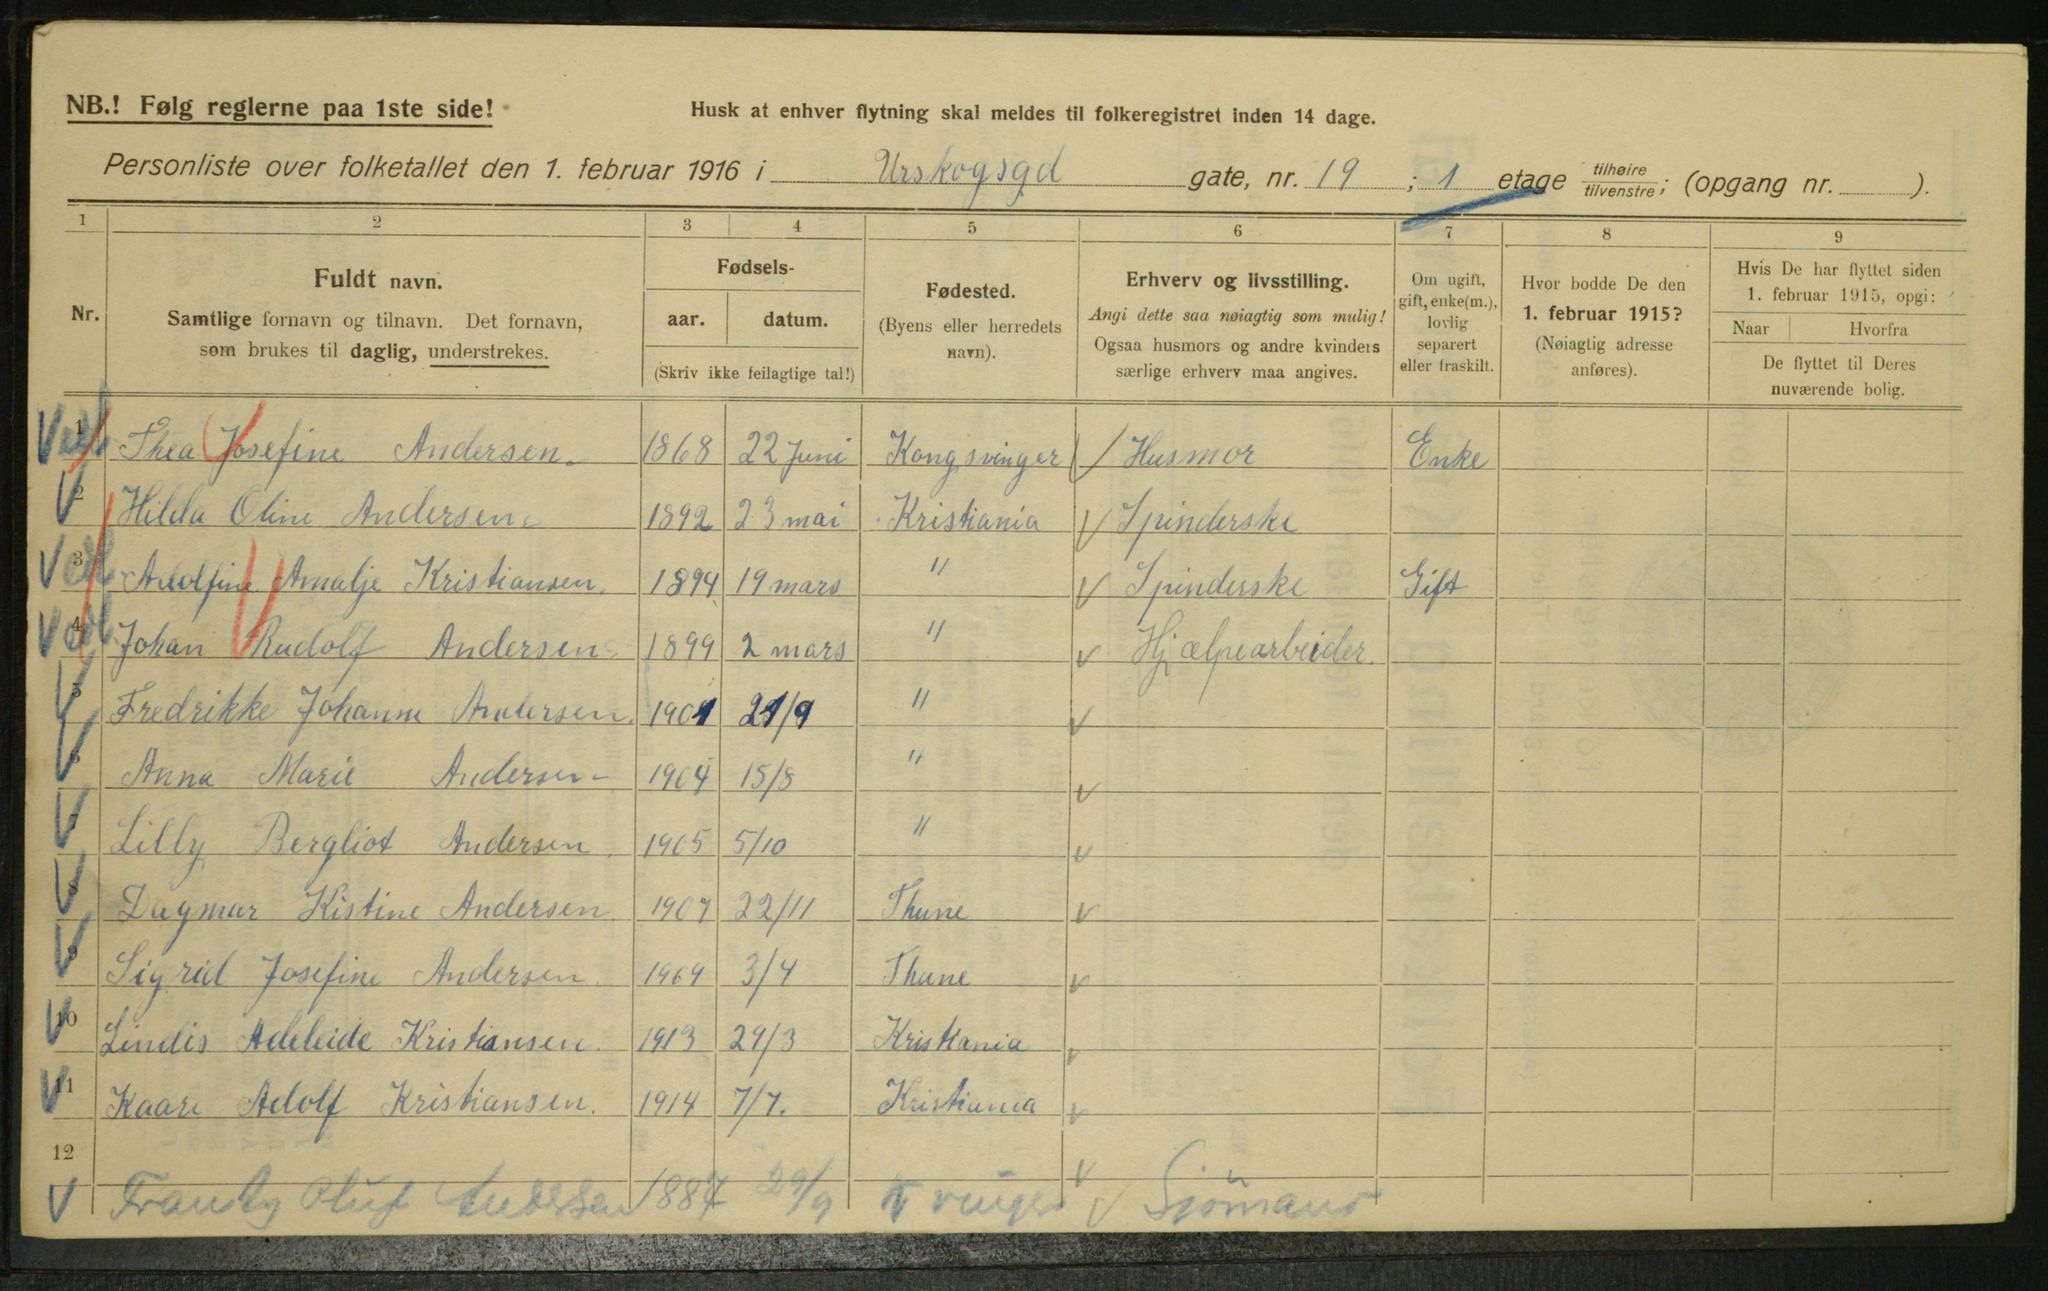 NB.! Følg reglerne paa 1ste side!
Husk at enhver flytning skal meldes til folkeregistret inden 14 dage.
Personliste over folketallet den 1. februar 1916 i Urskogsgd gate, nr. 19 ; 1 etage tilhøire tilvenstre; (opgang nr. ).
1 2 3 4 5 6 7 8 9
Nr.
Fuldt navn.
Samtlige fornavn og tilnavn. Det fornavn,
som brukes til daglig, understrekes.
Fødsels-
aar. datum.
(Skriv ikke feilagtige tal!)
Fødested.
(Byens eller herredets
navn).
Erhverv og livsstilling.
Angi dette saa nøiagtig som mulig!
Ogsaa husmors og andre kvinders
særlige erhverv maa angives.
Om ugift,
gift, enke(m.),
lovlig
separert
eller fraskilt.
Hvor bodde De den
1. februar 1915?
(Nøiagtig adresse
anføres).
Hvis De har flyttet siden
1. februar 1915, opgi:
Naar Hvorfra
De flyttet til Deres
nuværende bolig.
1 Thea Josefine Andersen 1868 22 Juni Kongsvinger Husmor Enke
2 Hilda Oline Andersen 1892 23 mai Kristiania Spinderske
3 Adolfine Amalje Kristiansen 1894 19 mars " Spinderske Gift
4 Johan Rudolf Andersen 1899 2 mars " Hjælpearbeider.
5 Fredrikke Johanne Andersen 1901 21/9 "
6 Anna Marie Andersen 1904 15/8 "
7 Lilly Bergliot Andersen 1905 5/10 "
8 Dagmar Kistine Andersen 1907 22/11 Thune
9 Sigrid Josefine Andersen 1909 3/4 Thune
10 Lindis Adeleide Kristiansen. 1913 29/3 Kristiania
11 Kaare Adolf Kristiansen. 1914 7/7. Kristiania
12
Oluf Andersen 1887 29/9 K vinger Sjömand